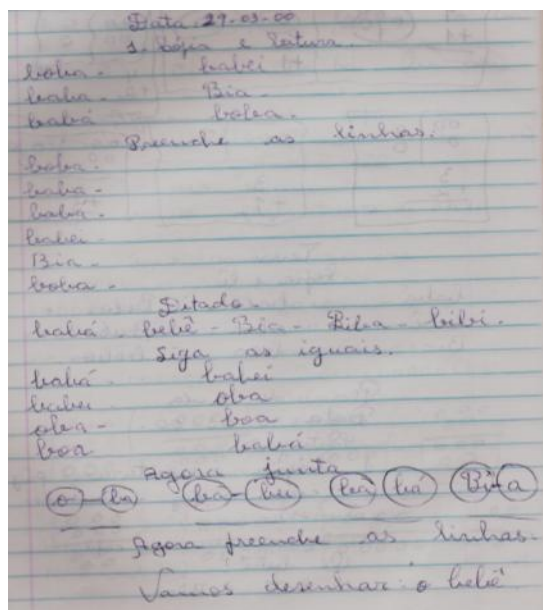 Data 29-03-00
1. Cópia e leitura.
boba - babei
baba - Bia -
babá boba.
Preenche as linhas.
boba -
baba -
babá -
babei -
Bia -
boba -
Ditado -
babá - bebê - Bia - Biba - bibi.
Siga as iguais.
babá - babei
babei oba
oba - boa
boa babá
Agora junta
o - ba ba - bei ba bá Bi - a
Agora preenche as linhas.
Vamos desenhar: o bebê